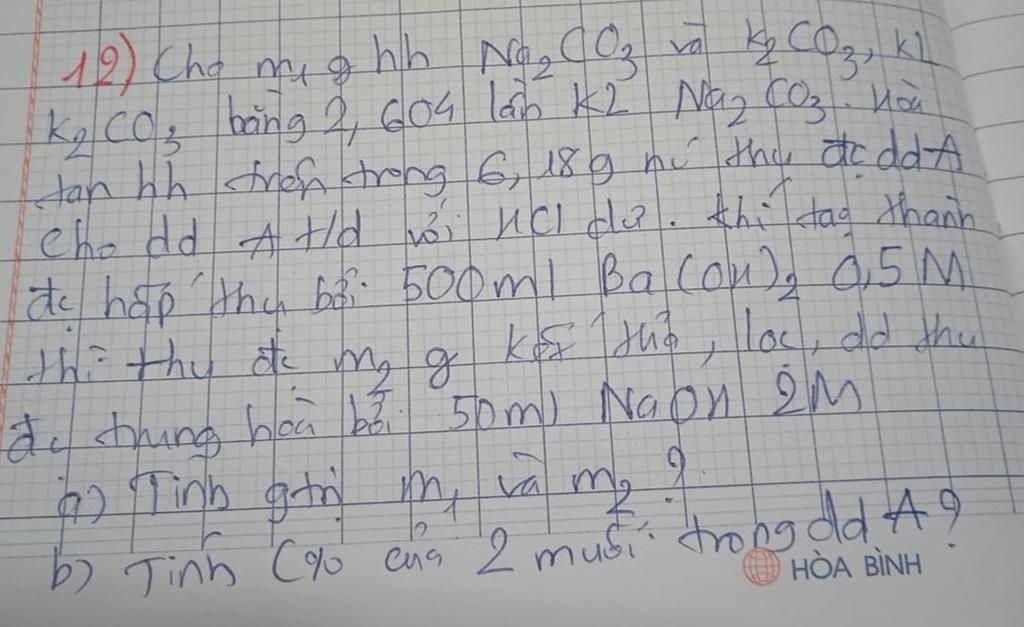 12) Cho m₁ g hh Na₂CO₃ và K₂CO₃, KL
K₂CO₃ bằng 2,604 lần KL Na₂CO₃. Hoà
tan hh trên trong 6,18g nc thu đc dd A
Cho dd A t/d với HCl dư. Khí tạo thành
đc hấp thụ bởi 500ml Ba(OH)₂ 0,5M
thì thu đc m₂ g kết tủa, lọc, dd thu
đc trung hoà bởi 50ml NaOH 2M
a) Tính gtrị m₁ và m₂?
b) Tính C% của 2 muối trong dd A?
HÒA BÌNH